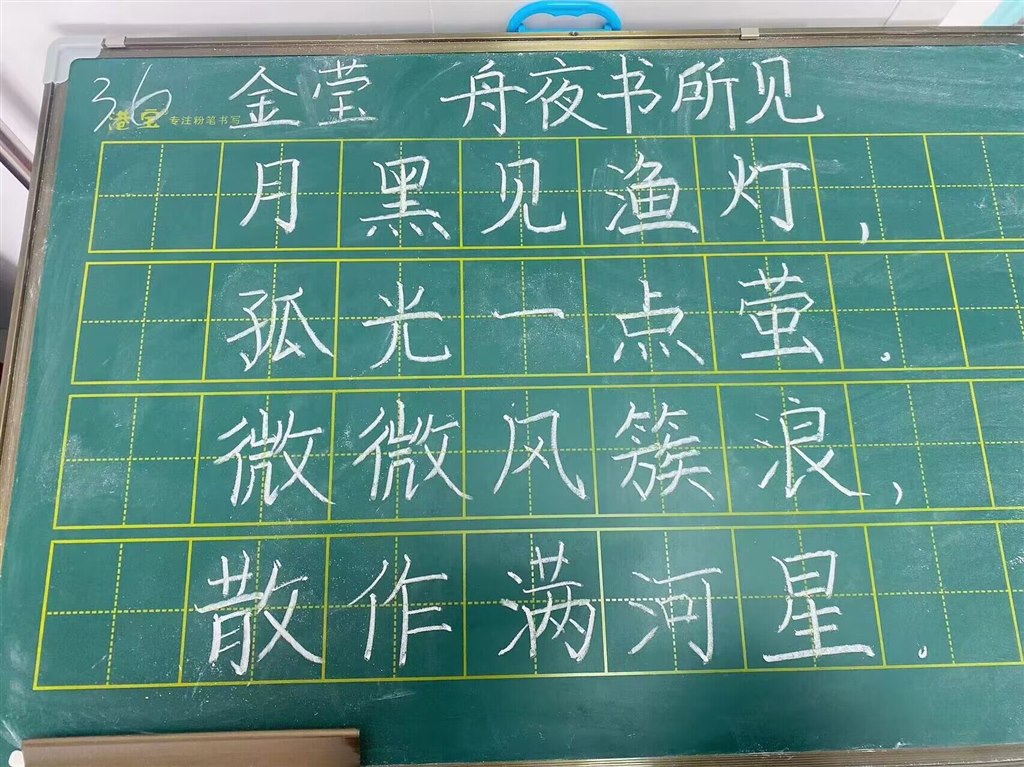 36 金莹 舟夜书所见
港宝 专注粉笔书写
月黑见渔灯,
孤光一点萤.
微微风簇浪,
散作满河星.